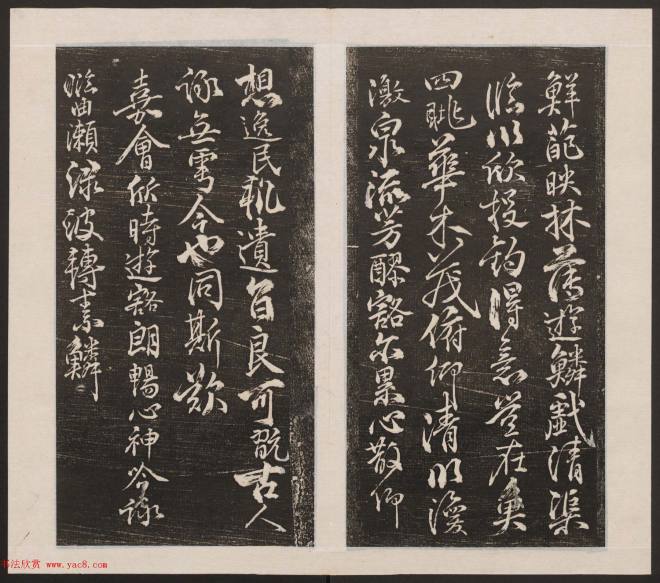 鮮葩映林薄遊鱗戲清渠
臨川欣投釣得意豈在魚
四眺華木茂俯仰清川渙
激泉流芳醪豁尓累心散仰
想逸民軌遺音良可翫古人
詠無雩今也同斯歎
嘉會欣時遊豁朗暢心神吟詠
臨曲瀨渌波轉素鱗
书法欣赏 www.yac8.com